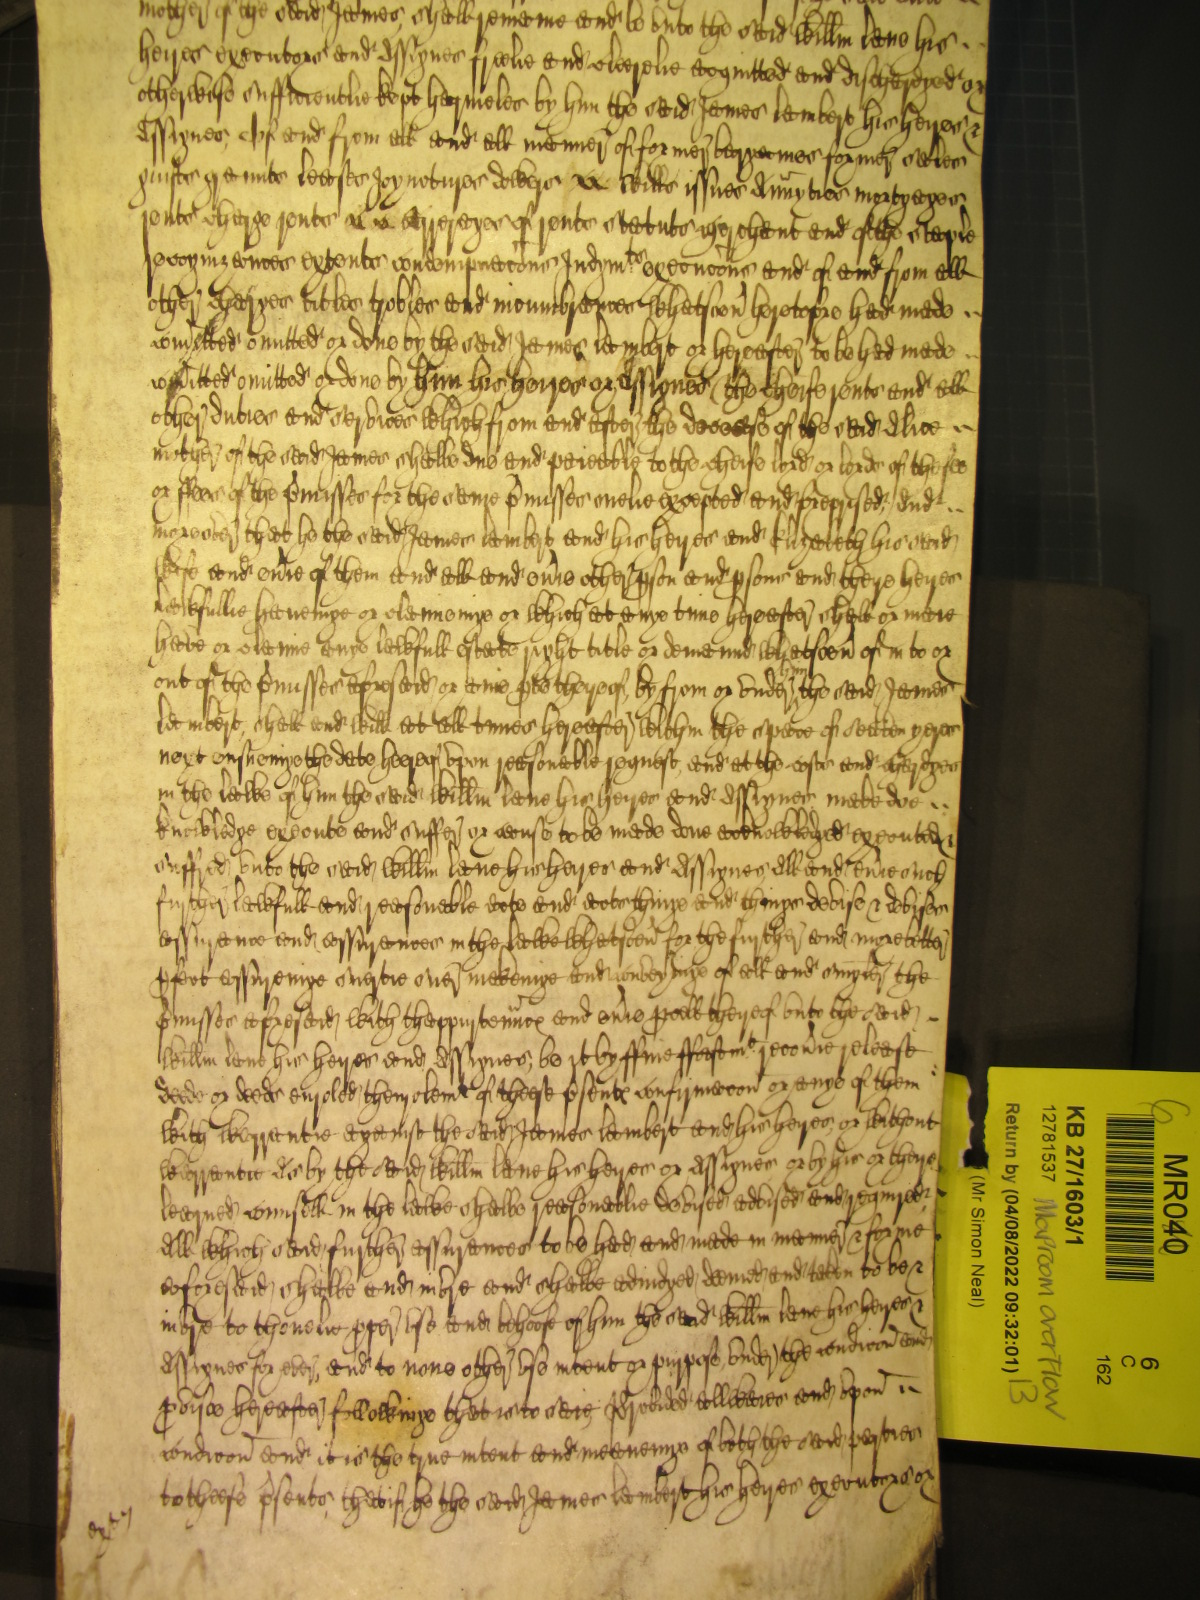 mother of the said James shall remaine and be unto the said Willm lane his
heires executors and Assignes frelie and clerelie acquitted and discharged or
otherwise sufficientlie kept harmeles by him the said James lambert his heyres &
Assignes, Of and from all and all manner of former bargaines former sales
guifts graunts leases Joyntures dowers willes issues Anuyties mortgages
rents charge rents arrerages of rents statuts merchant and of the staple
recognizances extents condempnacons Judgmts execucons and of and from all
other charges titles trobles and incumbrances whatsoever heretofore had made
comitted omitted or done by the said James lambert or hereafter to be had made
comitted omitted or done by him his heyres or Assignes (the cheife rents and all
other duties and services which from and after the decease of the said Alice
mother of the said James shalbe due and paieable to the cheife lord or lords of the fee
or fees of the pmisses for the same pmisses onelie excepted and foreprised, And
moreover that he the said James lambert and his heyres and Elizabeth his said
wife and evrie of them and all and evrie other pson and psons and there heyres
lawfullie haveinge or claimeinge or which at anye time hereafter shall or maie
have or claime anye lawfull estate right title or demaund whatsoever of in to or
out of the pmisses aforesaid or anie pte thereof, by from or under him the said James
lambert, shall and will at all times hereafter within the space of seaven yeres
next ensueinge the date hereof upon reasonable request, and at the costs and charges
in the lawe of him the said Willm lane his heyres and Assignes, make doe
knowledge execute and suffer or cause to be made done acknowledged executed &
suffred, unto the said Willm lane his heyres and Assignes All and evrie such
further lawfull and reasonable acte and acts thinge and things devise & devises
assurance and assurances in the lawe whatsoever for the further and more better
pfect assureinge suertie suer makeinge and conveyinge of all and singuler the
pmisses aforesaid with thappurtennces and evrie pcell thereof unto the said
Willm lane his heyres and Assignes, be it by ffine feoffmt recoverie release
deede or deeds enroled thenrolemt of these psents confirmacon or anye of them
with warrantie against the said James lambert and his heyres, or without
warrantie As by the said Willm lane his heyres or Assignes or by his or there
learned counsell in the lawe shalbe reasonablie devised advised and required,
All which said further assurances to be had and made in manner & forme
aforesaid shalbe and inure and shalbe adiudged demed and taken to be &
inure to thonelie pper use and behoofe of him the said Willm lane his heyres &
Assignes for ever, and to none other use intent or purpose, under the condicon and
pviso hereafter followinge that is to saie Provided allwaies and upon
condicon and it is the true intent and meaneinge of both the said parties
to these psents, that if he the said James lambert his heyres executors or
MR040
6
C
162
KB 27/1603/1
12781537 Maproom overflow
Return by (04/08/2022 09:32:01) B
(Mr Simon Neal)